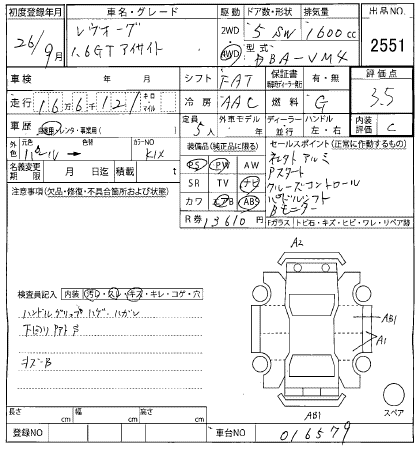 初度登録年月 車名・グレード 駆動 ドア数・形状 排気量 出品NO.
26/9月 レヴォーグ 1.6GTアイサイト 2WD AWD 5 SW 1600cc 2551
型式 DBA-VM4
車検 年 月 シフト FAT 保証書 有・無 評価点 3.5
走行 16千121 キロ マイル 冷房 AAC 燃料 G
車歴 自家用・レンタ・事業用( ) 定員 5人 外車モデル 年 ディーラー 並行 ハンドル 左・右 内装評価 C
外色 元色 パール 色替 カラーNO K1X 装備品(純正品に限る) セールスポイント(正常に作動するもの)
名義変更期限 月 日迄 積載 t PS PW AW
注意事項(欠品・修復・不具合箇所および状態) SR TV ナビ
カワ エアB ABS
R券 13610円
革巻アルミ
Pスタート
クルーズコントロール
パドルシフト
Bモニター
Fガラス・トビ石・キズ・ヒビ・ワレ・リペア跡
A2
検査員記入 内装・汚レ・スレ・キズ・キレ・コゲ・穴
ハンドルグリップ ハゲ・ハガレ
下回りサビ
キズ-B
AB1
A1
AB1
スペア
長さ cm 幅 cm 高さ cm
登録NO 車台NO 016579